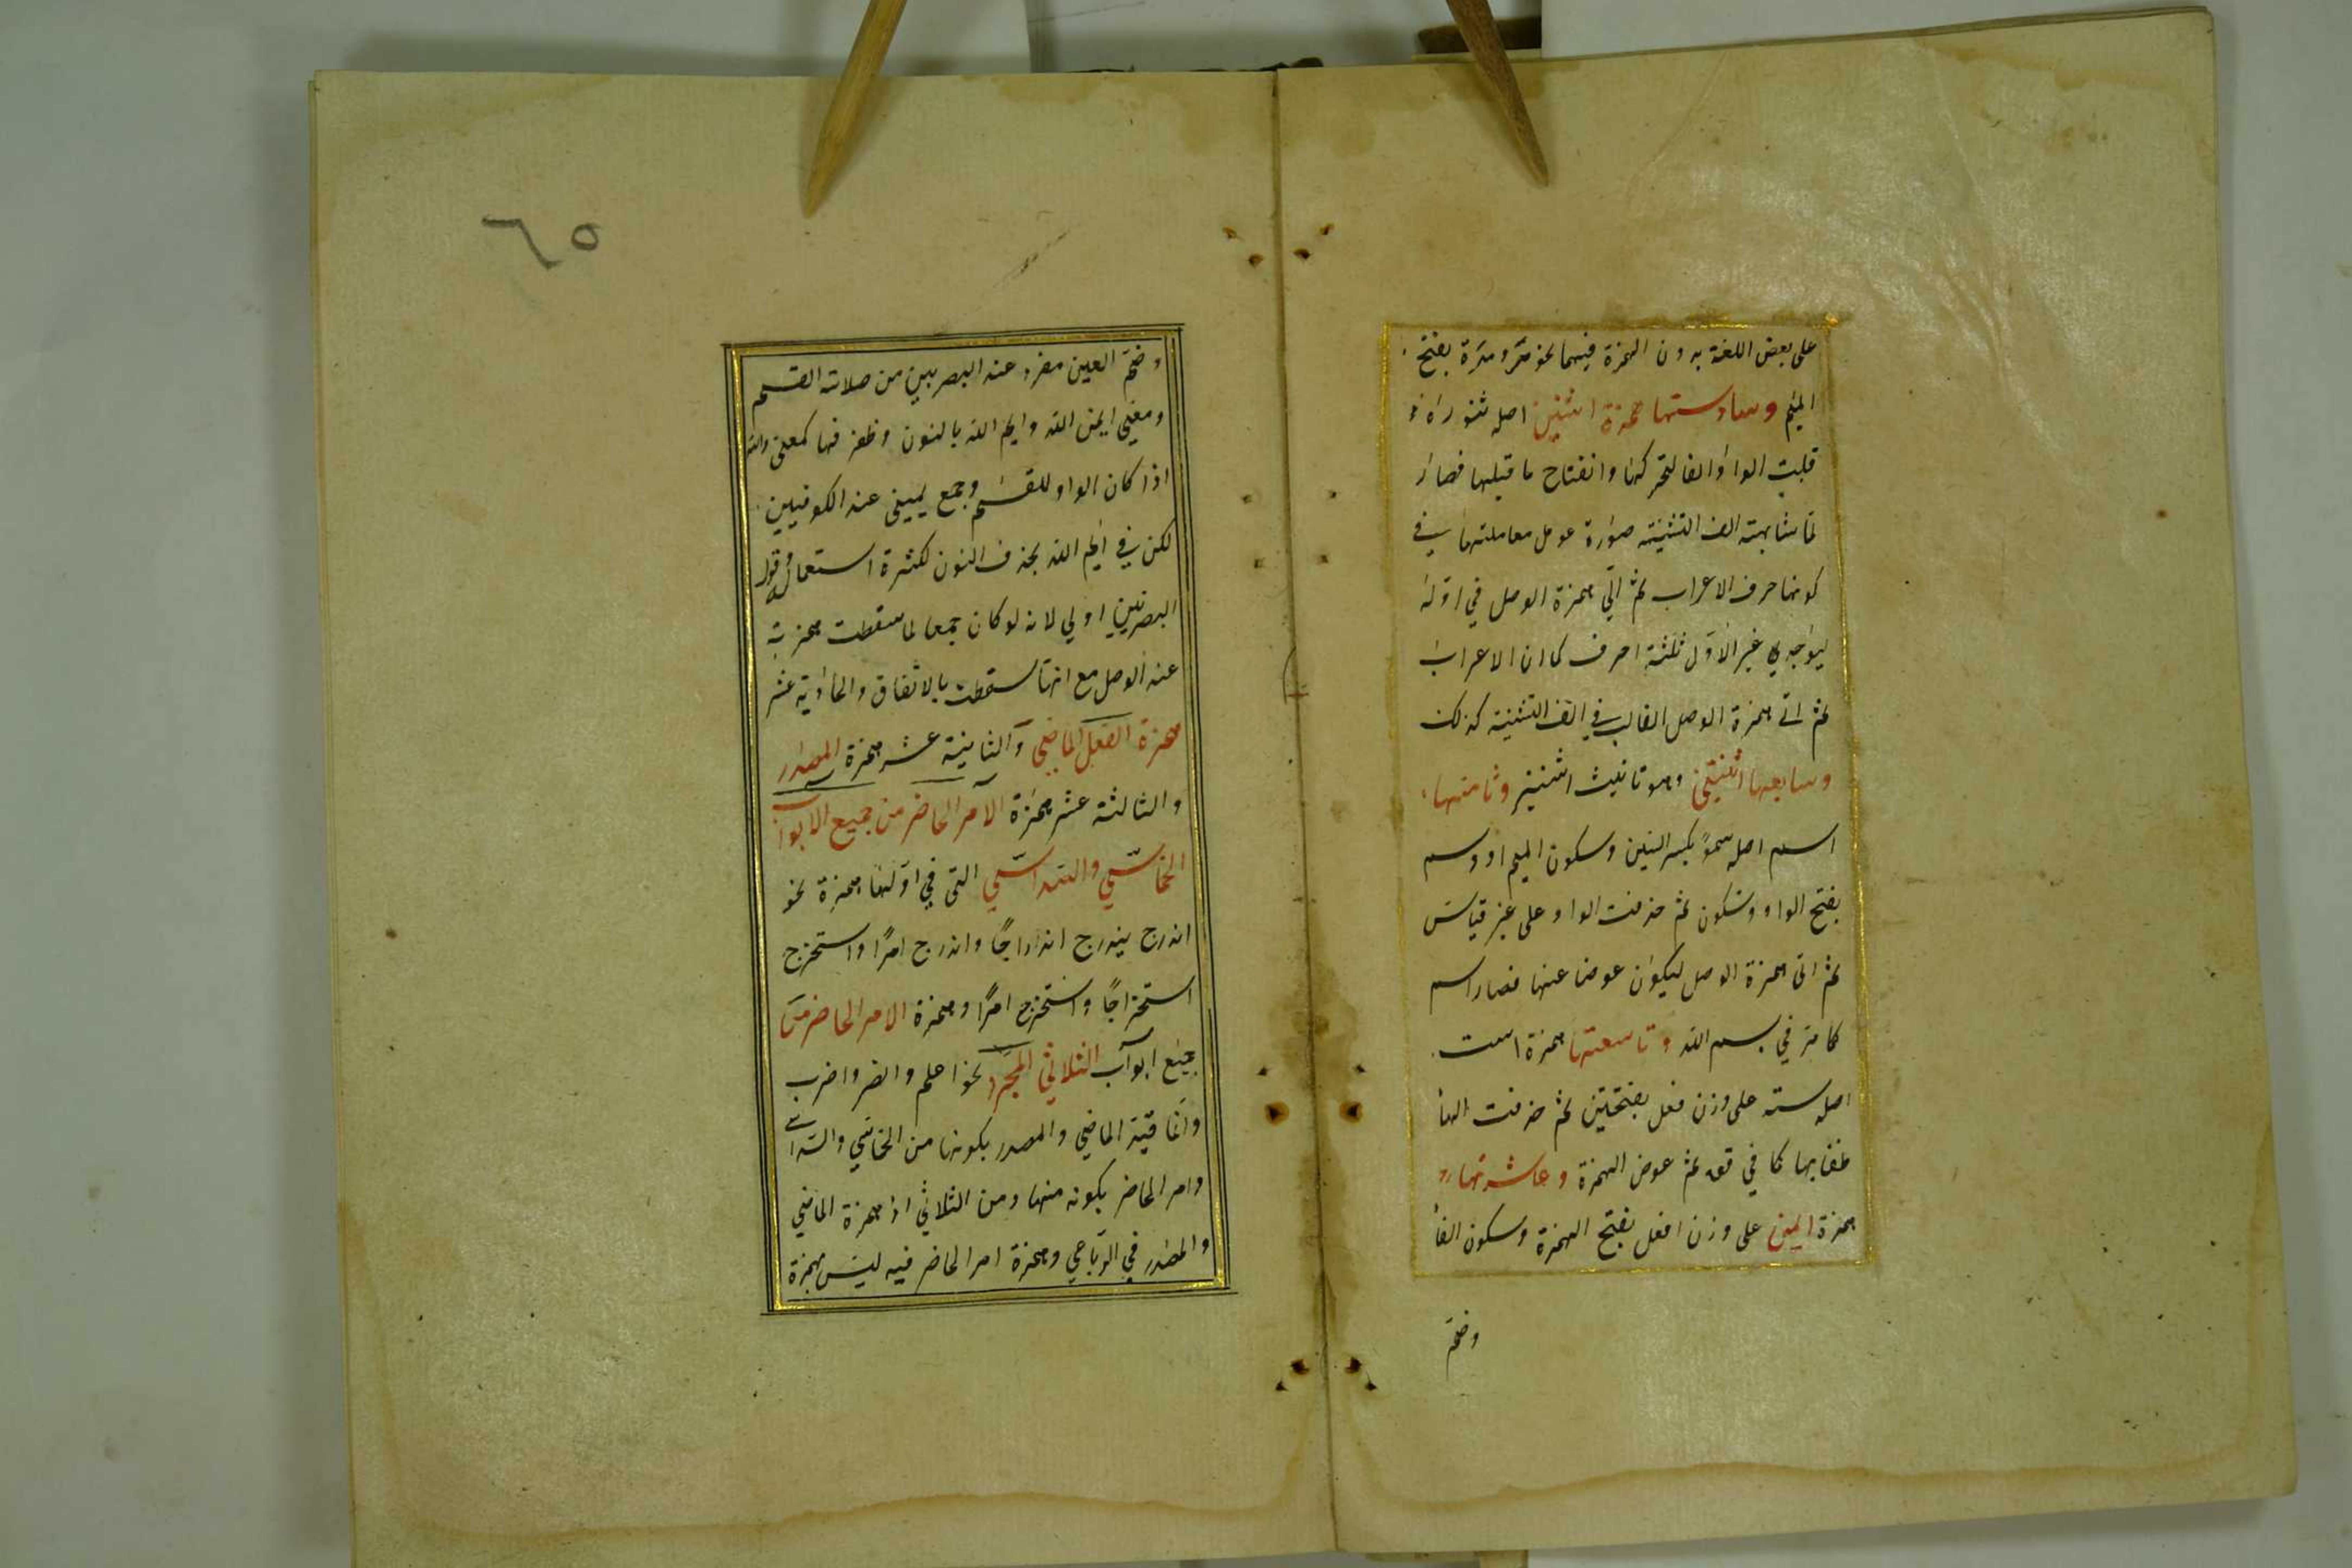 على بعض اللغة بدون الهمزة فيهما نحو مَرْء ومَرْة بفتح
الميم وسادستها همزة اثنين اصله ثنو
قلبت الواو الفا لتحركها وانفتاح ما قبلها فصار
لمّا شابهته الف التثنية صورة عومل معاملتها في
كونها حرف الاعراب ثم اتى همزة الوصل في اوّله
غير الاوّل ثلثة احرف كما ان الاعراب
ثم اتى همزة الوصل الغالب في الف التثنية كذلك
وسابعها اثنتين وهو تانيث اثنين وثامنها
اسم اصله سموٌ بكسر السين وسكون الميم او وسم
بفتح الواو وسكون ثم حذفت الواو على غير قياس
ثم اتى همزة الوصل ليكون عوضا عنها فصار اسم
كما مر في بسم الله وتاسعتها همزة است
اصله سته على وزن فعل بفتحتين ثم حذفت الهأ
كما في ثم عوض الهمزة وعاشرتها
همزة ايمن على وزن افعل بفتح الهمزة وسكون الفأ
وضمّ
٦٥
وضمّ العين مفرد عند البصريين من صلات القسم
ومعنى ايمن الله وايم الله بالنون وحذفها كمعنى والله
اذا كان الواو للقسم وجمع يمين عند الكوفيين
لكن في ايم الله بحذف النون لكثرة استعماله وقول
البصريين اولى لانه لو كان جمعا لما سقطت همزته
عند الوصل مع انها سقطت بالاتفاق والحادية عشر
همزة الفعل الماضى والثانية عشر همزة المصدر
والثالثة عشر همزة الأمر الحاضر من جميع الابواب
الخماسّى والسّداسّى التى في اوّلها همزة نحو
اندرج يندرج اندراجًا واندرج امرًا واستخرج
استخراجًا واستخرج امرًا وهمزة الامر الحاضر من
جميع ابواب الثلاثى المجرّد نحو اعلم وانصر واضرب
وانّما قيّد الماضى والمصدر بكونها من الخماسى والسداسى
وامر الحاضر بكونه منها ومن الثلاثى اذ همزة الماضى
والمصدر في الرّباعى وهمزة امر الحاضر فيه ليس همزة